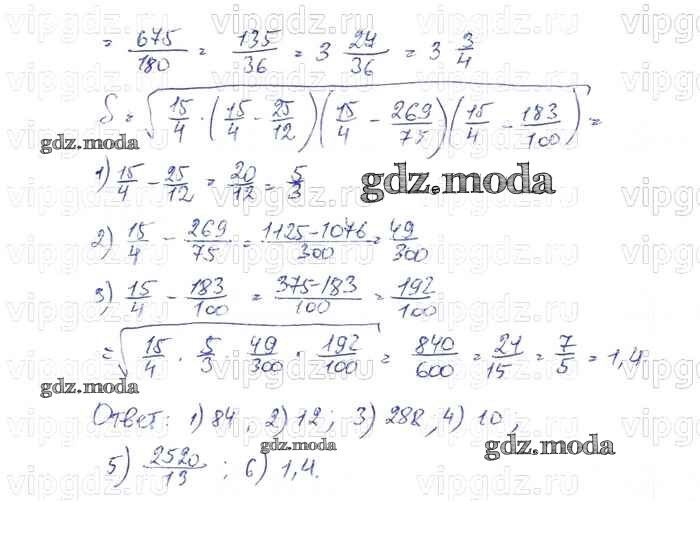 = 675/180 = 135/36 = 3 24/36 = 3 3/4
S = √(15/4 · (15/4 - 25/12)(15/4 - 269/75)(15/4 - 183/100)) =
gdz.moda
1) 15/4 - 25/12 = 20/12 = 5/3
gdz.moda
2) 15/4 - 269/75 = 1125-1076/300 = 49/300
3) 15/4 - 183/100 = 375-183/100 = 192/100
= √(15/4 · 5/3 · 49/300 · 192/100) = 840/600 = 21/15 = 7/5 = 1,4.
gdz.moda
Ответ: 1) 84, 2) 12; 3) 288; 4) 10;
gdz.moda
gdz.moda
5) 2520/13; 6) 1,4.
vipgdz.ru